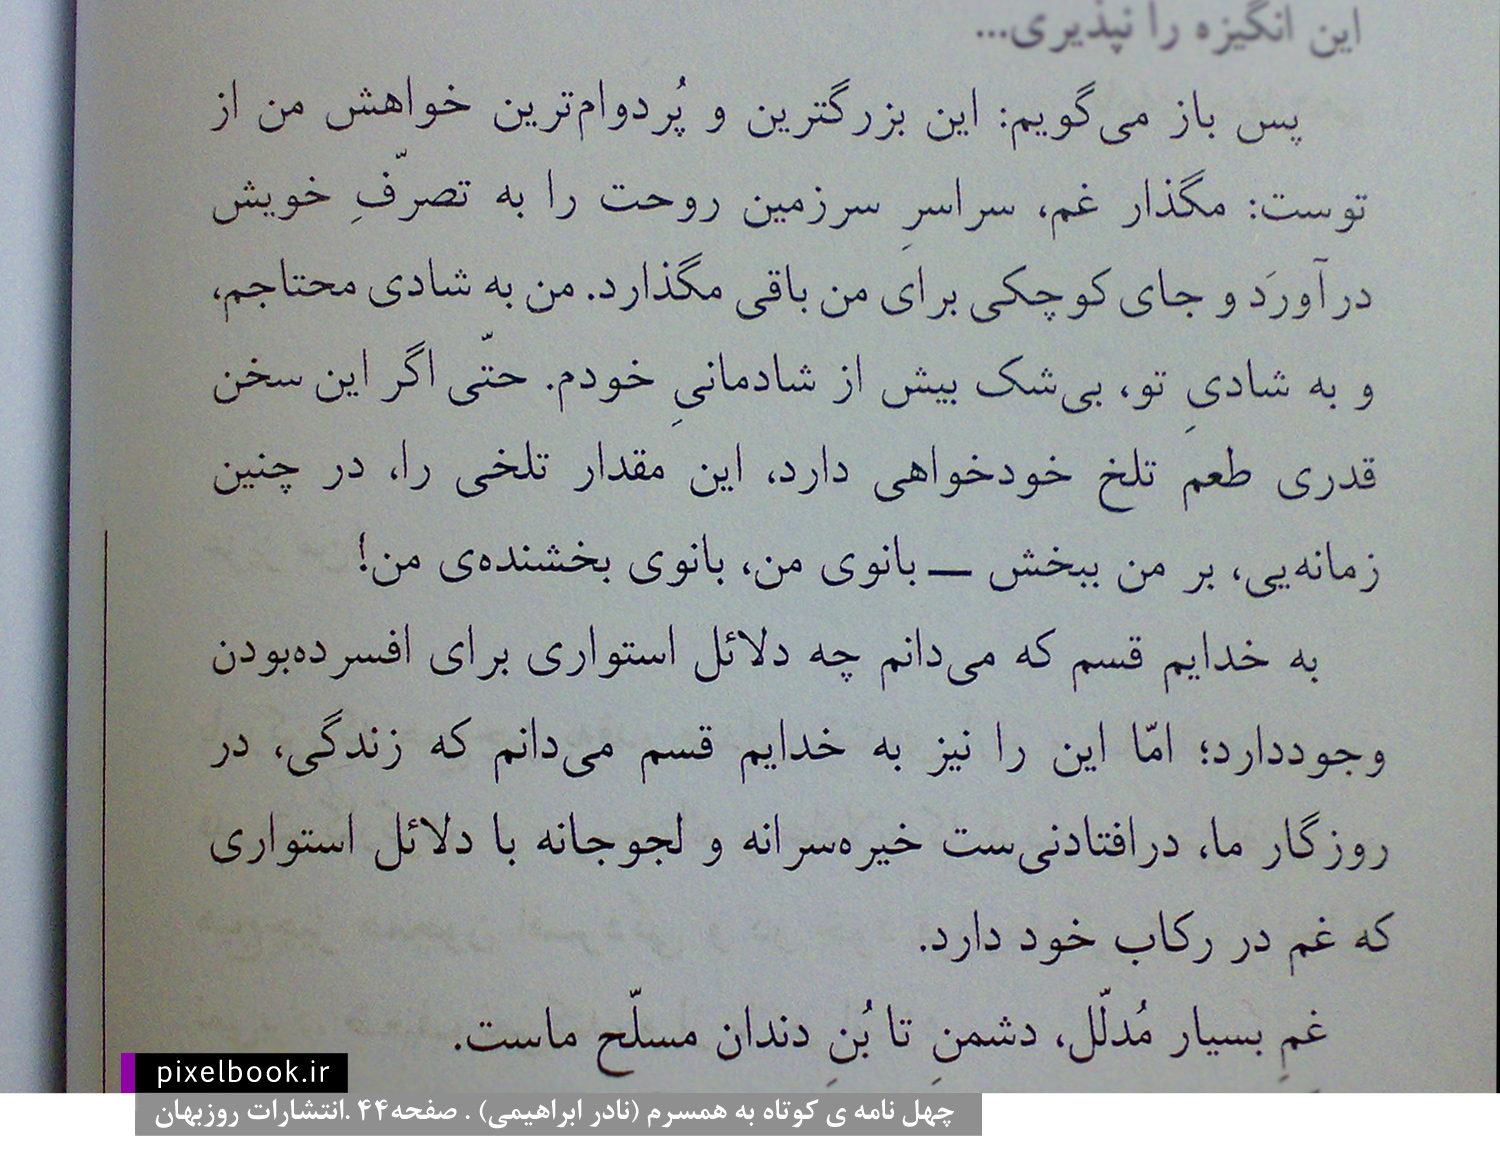 این انگیزه را نپذیری...
پس باز می‌گویم: این بزرگترین و پُردوام‌ترین خواهش من از
توست: مگذار غم، سراسرِ سرزمین روحت را به تصرّفِ خویش
درآورَد و جای کوچکی برای من باقی مگذارد. من به شادی محتاجم،
و به شادیِ تو، بی‌شک بیش از شادمانیِ خودم. حتّی اگر این سخن
قدری طعم تلخ خودخواهی دارد، این مقدار تلخی را، در چنین
زمانه‌یی، بر من ببخش — بانوی من، بانوی بخشنده‌ی من!
به خدایم قسم که می‌دانم چه دلائل استواری برای افسرده‌بودن
وجوددارد؛ امّا این را نیز به خدایم قسم می‌دانم که زندگی، در
روزگار ما، درافتادنی‌ست خیره‌سرانه و لجوجانه با دلائل استواری
که غم در رکاب خود دارد.
غمِ بسیار مُدلّل، دشمنِ تا بُنِ دندان مسلّح ماست.
pixelbook.ir
چهل نامه ی کوتاه به همسرم (نادر ابراهیمی) . صفحه۴۴ .انتشارات روزبهان